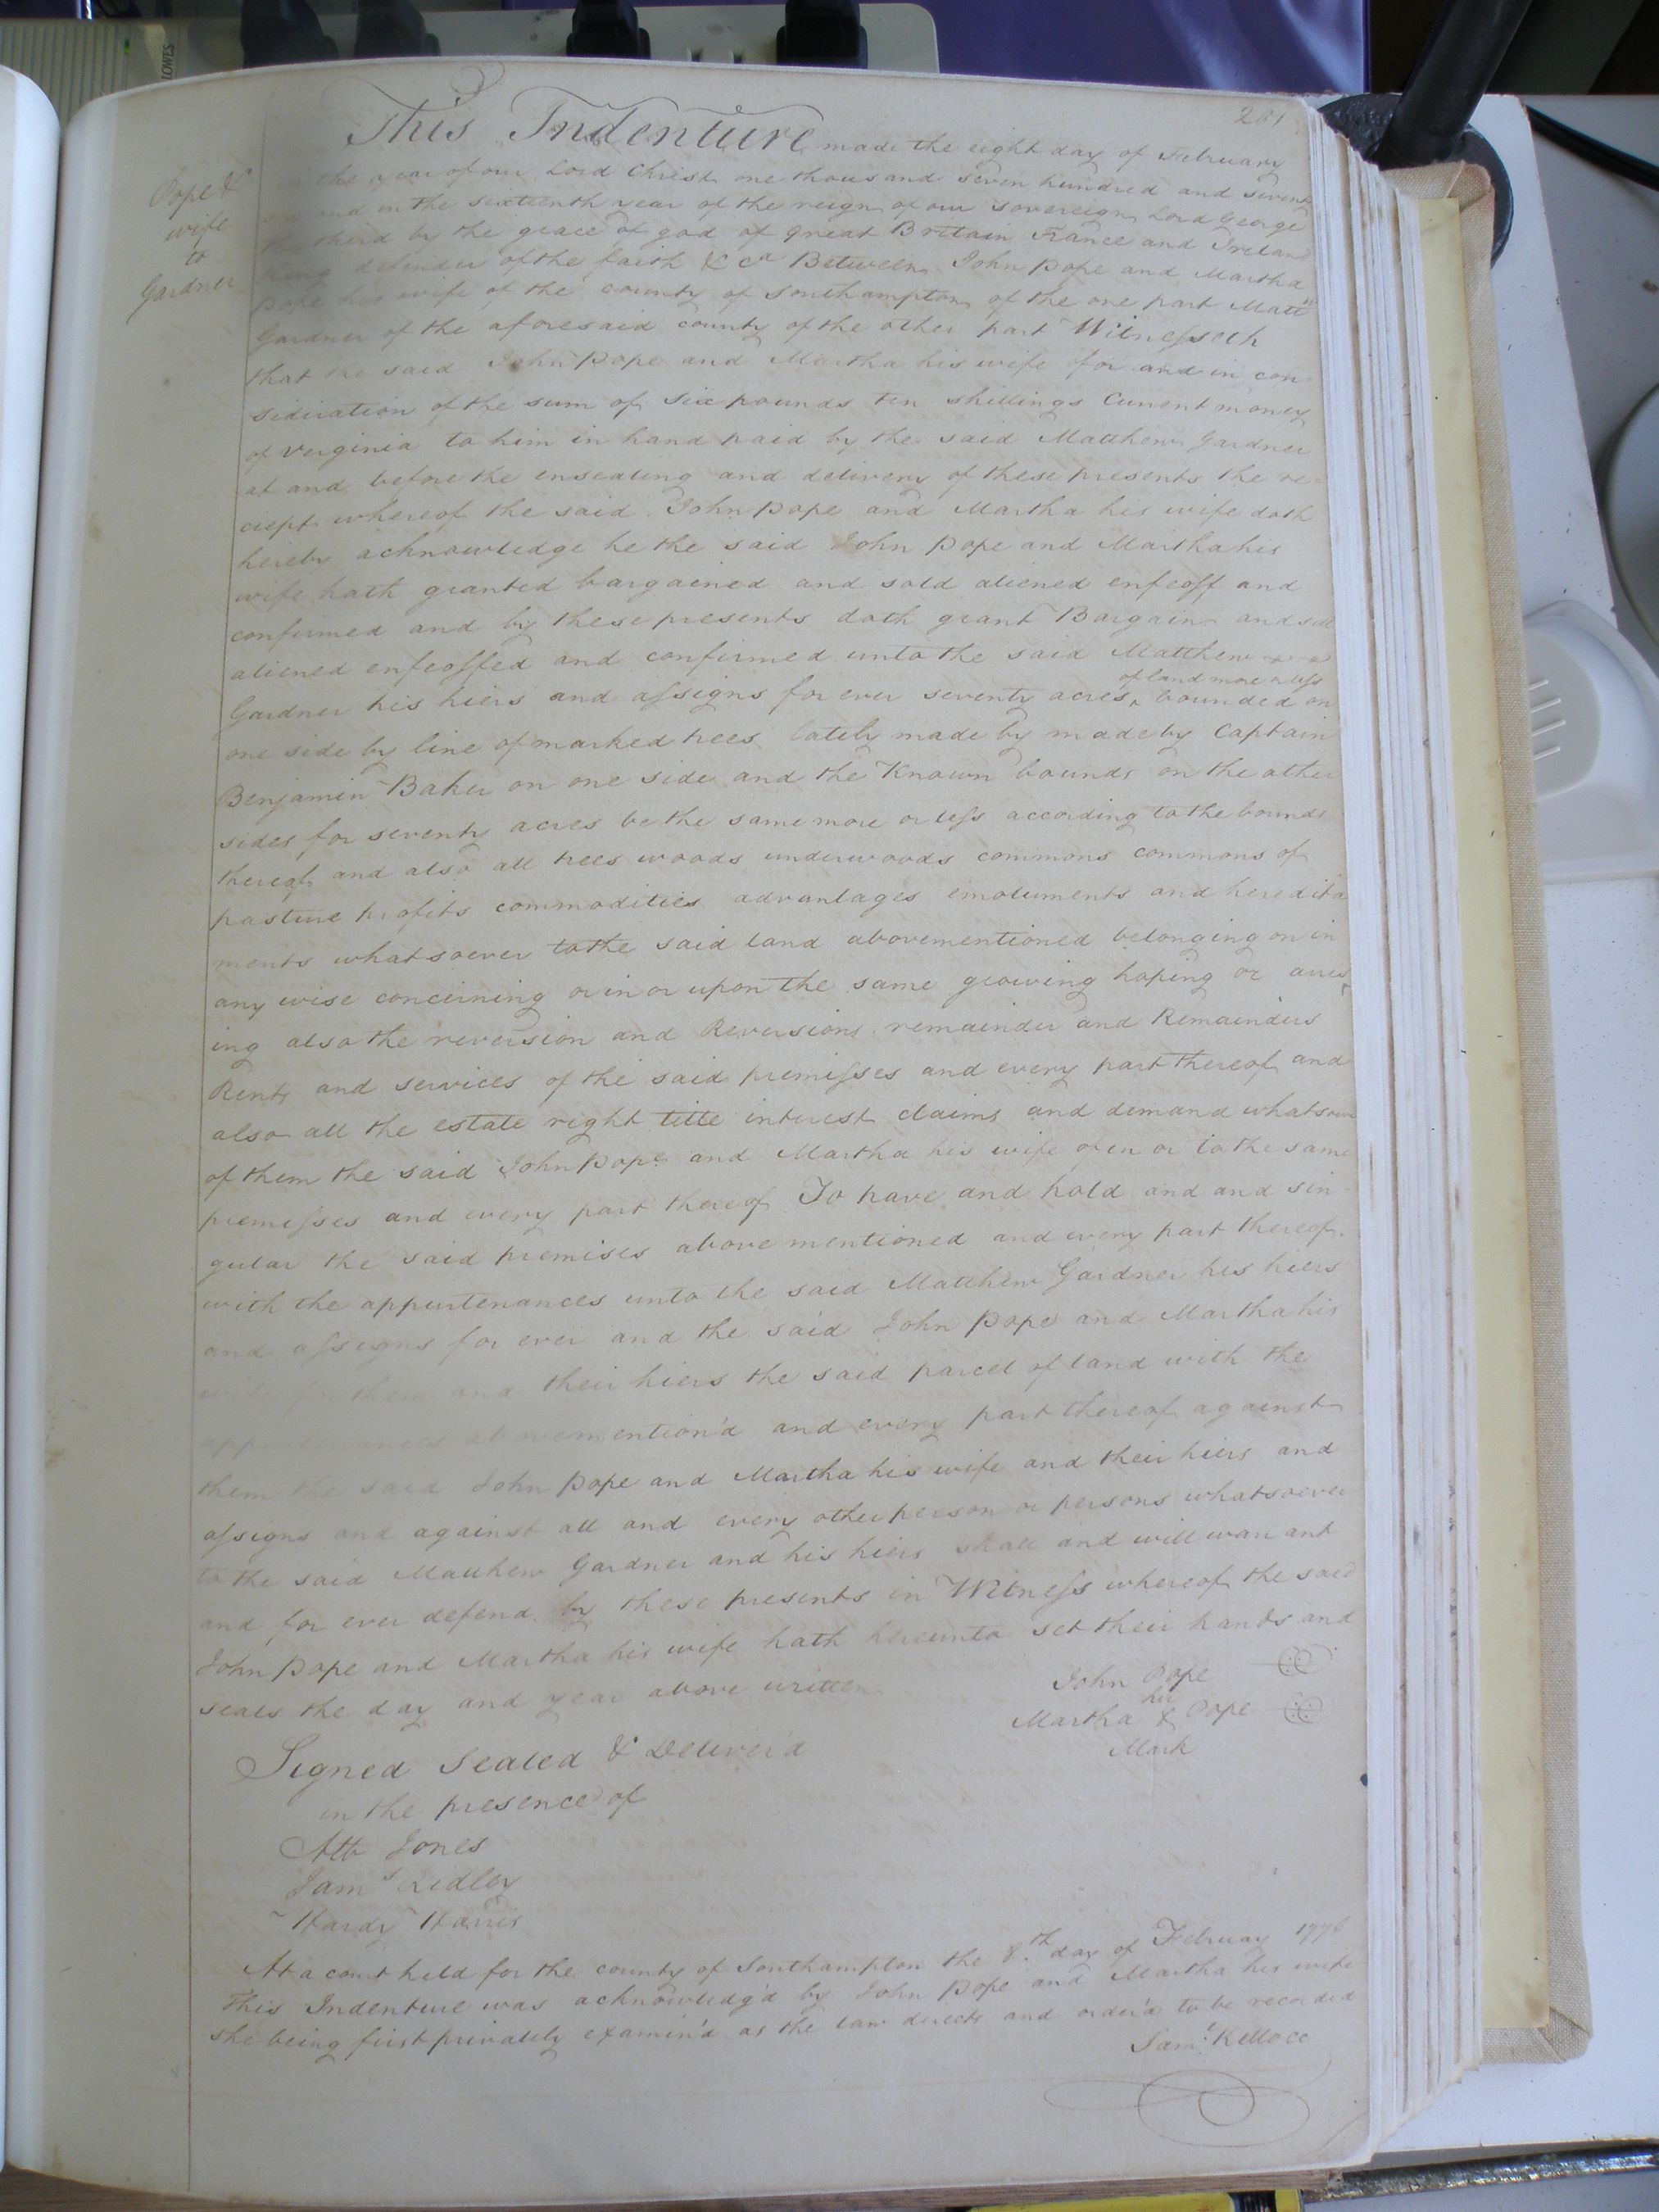 201
This Indenture made the eight day of February
Pope &
wife
to
Gardner
the year of our Lord Christ one thousand seven hundred and seventy
and in the sixteenth year of the reign of our sovereign Lord George
the third by the grace of god of great Britain France and Ireland
King defender of the faith &ca Between John Pope and Martha
Pope his wife of the county of Southampton of the one part Mattw
Gardner of the aforesaid county of the other part Witnesseth
that the said John Pope and Martha his wife for and in con
sideration of the sum of six pounds ten shillings Current money
of Verginia to him in hand paid by the said Matthew Gardner
at and before the ensealing and delivery of these presents the re-
ciept whereof the said John Pope and Martha his wife doth
hereby acknowledge he the said John Pope and Martha his
wife hath granted bargained and sold aliened enfeoff and
confirmed and by these presents doth grant Bargain and sell
aliened enfeoffed and confirmed unto the said Matthew
of land more or less
Gardner his hiers and assigns for ever seventy acres ‸ bounded on
one side by line of marked trees lately made by made by Captain
Benjamin Baker on one side and the Known bounds on the other
sides for seventy acres be the same more or less according to the bounds
thereof and also all trees woods underwoods commons commons of
pasture profits commodities advantages emoluments and heredita
ments whatsoever to the said land abovementioned belonging or in
any wise concerning or in or upon the same growing hoping or aris
ing also the reversion and Reversions remainder and Remainders
Rents and services of the said premisses and every part thereof and
also all the estate right title interest claims and demand whatsoever
of them the said John Pope and Martha his wife of in or to the same
premisses and every part thereof To have and hold and and sin
gular the said premises above mentioned and every part thereof
with the appurtenances unto the said Matthew Gardner his hiers
and assigns for ever and the said John Pope and Martha his
wife for them and their hiers the said parcel of land with the
appurtenances abovemention'd and every part thereof against
them the said John Pope and Martha his wife and their hiers and
assigns and against all and every other person or persons whatsoever
to the said Matthew Gardner and his hiers shall and will warrant
and for ever defend by these presents in Witness whereof the said
John Pope and Martha his wife hath hereunto set their hands and
seals the day and year above written
John Pope
her
Martha X Pope
Mark
Signed Sealed & Deliver'd
in the presence of
Jones
Jams Ridley
Hardy Harris
At a court held for the county of Southampton the 8th day of February 1776
This Indenture was acknowledg'd by John Pope and Martha his wife
she being first privately examin'd as the law directs and order'd to be recorded
Saml Kelloce